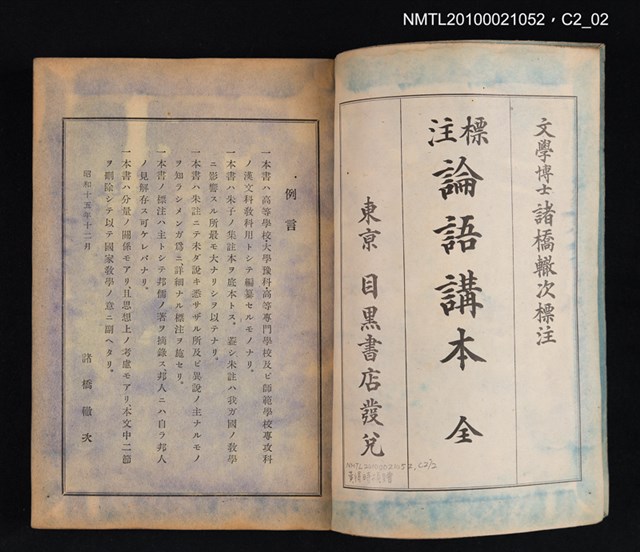 NMTL20100021052，C2_02
文學博士 諸橋轍次標注
標注 論語講本 全
東京 目黑書店發兌
NMTL20100021052, C2/2
例言
一本書ハ高等學校大學豫科高等專門學校及ビ師範學校專攻科
ノ漢文科教科用トシテ編纂セルモノナリ。
一本書ハ朱子ノ集註本ヲ底本トス。蓋シ朱註ハ我ガ國ノ敎學
ニ影響スル所最モ大ナリシヲ以テナリ。
一本書ハ朱註ニテ未ダ說キ盡サザル所及ビ異說ノ主ナルモノ
ヲ知ラシメンガ爲ニ詳細ナル標注ヲ施セリ。
一本書ノ標注ハ主トシテ邦儒ノ著ヲ摘錄ス邦人ニハ自ラ邦人
ノ見解存ス可ケレバナリ。
一本書ハ分量ノ關係モアリ且思想上ノ考慮モアリ本文中二節
ヲ刪除シテ以テ國家敎學ノ意ニ副ヘタリ。
昭和十五年十二月
諸橋轍次